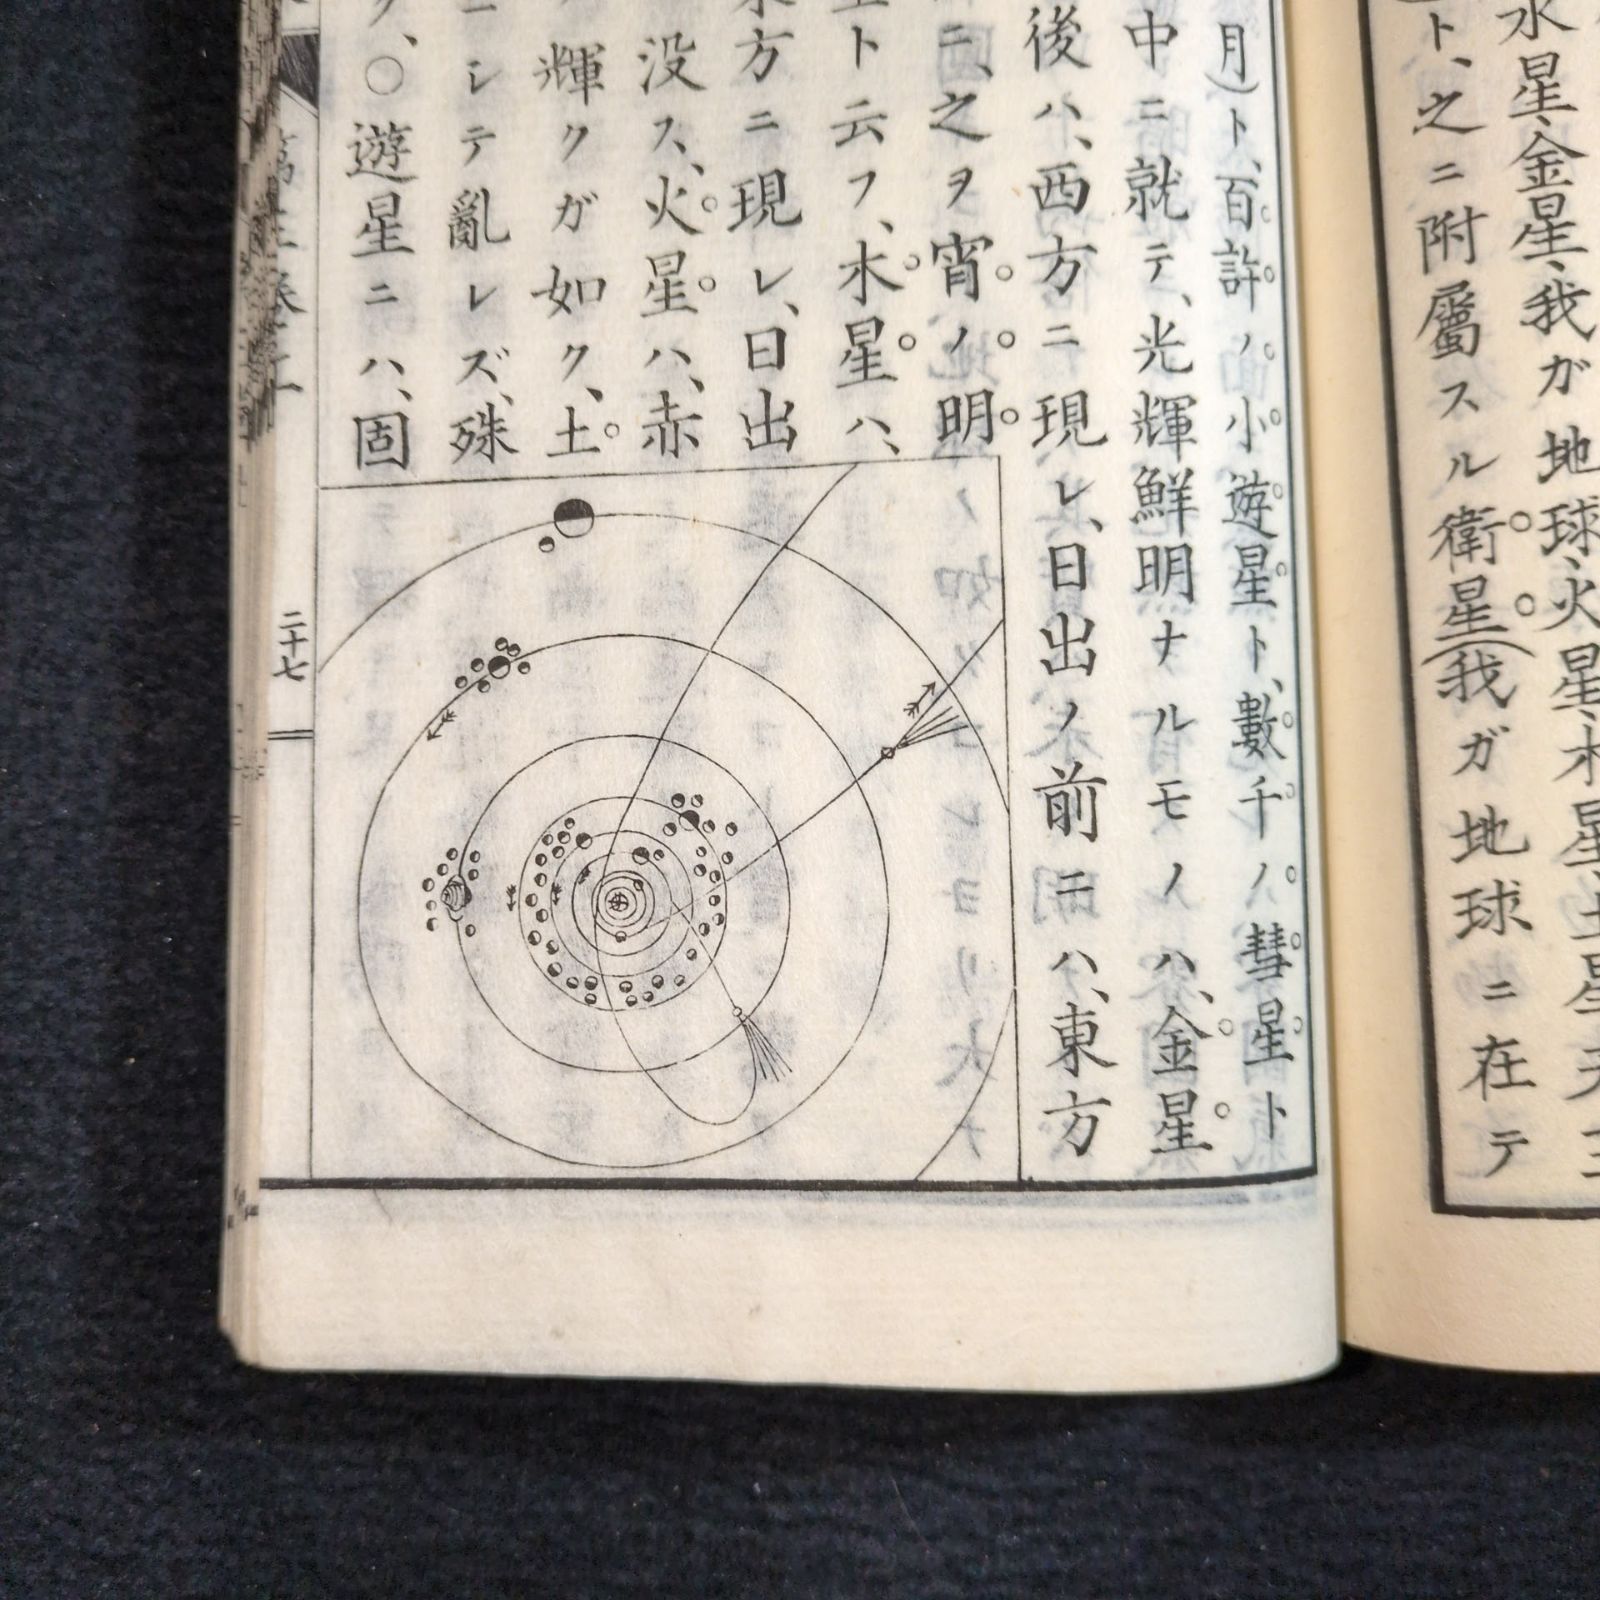 水星、金星、我ガ地球、火星、木星、土星、天王
ト、之ニ附屬スル衛星(我ガ地球ニ在テ
月)ト、百許ノ小遊星ト、數千ノ彗星ト
中ニ就テ、光輝鮮明ナルモノハ、金星
後ハ、西方ニ現レ、日出ノ前ニハ、東方
ニ、之ヲ宵ノ明
ト云フ、水星ハ、
方ニ現レ、日出
没ス、火星ハ、赤
輝クガ如ク、土
ニシテ亂レズ、殊
ク、○遊星ニハ、固
二十七